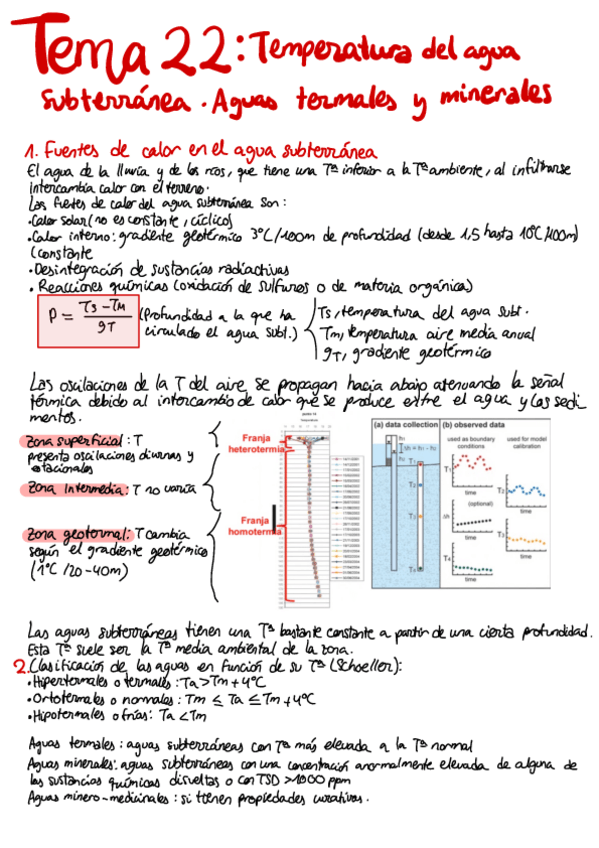 Tema 22: Temperatura del agua
subterránea. Aguas termales y minerales
1. Fuentes de calor en el agua subterránea
El agua de la lluvia y de los rios, que tiene una Tª inferior a la Tª ambiente, al infiltrarse
intercambia calor con el terreno.
Las fuetes de calor del agua subterránea son:
•Calor solar (no es constante, cíclico)
•Calor interno: gradiente geotérmico 3ºC/100m de profundidad (desde 1,5 hasta 10ºC/100m)
(constante
•Desintegración de sustancias radiactivas
•Reacciones químicas (oxidación de sulfuros o de materia orgánica)
P = Ts - Tm / gT (Profundidad a la que ha circulado el agua subt.)
Ts, temperatura del agua subt.
Tm, temperatura aire media anual
gT, gradiente geotérmico
Las oscilaciones de la T del aire se propagan hacia abajo atenuando la señal
térmica debido al intercambio de calor que se produce entre el agua y los sedi
mentos.
Zona superficial: T
presenta oscilaciones diurnas y
estacionales
Zona Intermedia: T no varía
Zona geotermal: T cambia
según el gradiente geotérmico
(1ºC/20-40m)
Franja
heterotermia
Franja
homotermia
(a) data collection
h₁
Δh = h₁ - h₂
h₂
T₁
T₂
T₃
T₄
(b) observed data
used as boundary
conditions
used for model
calibration
T₁
time
(optional)
Δh
time
T₄
time
T₂
time
T₃
time
Las aguas subterráneas tienen una Tª bastante constante a partir de una cierta profundidad.
Esta Tª suele ser la Tª media ambiental de la zona.
2. Clasificación de las aguas en función de su Tª (Schoeller):
•Hipertermales o termales: Ta>Tm+4ºC
•Ortotermales o normales: Tm ≤ Ta ≤ Tm+4ºC
•Hipotermales o frías: Ta <Tm
Aguas termales: aguas subterráneas con Tª más elevada a la Tª normal
Aguas minerales: aguas subterráneas con una concentración anormalmente elevada de alguna de
las sustancias químicas disueltas o con TSD >1000 ppm
Aguas minero-medicinales: si tienen propiedades curativas.